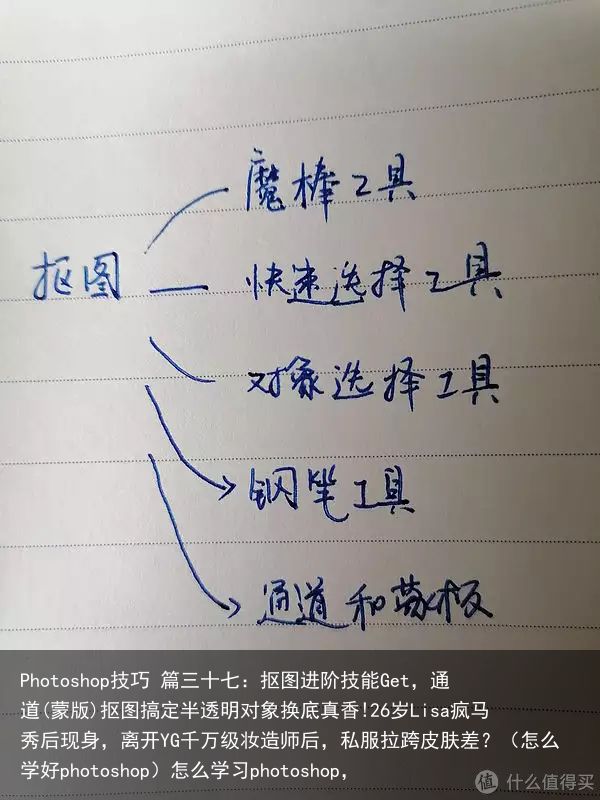 魔棒工具
抠图 快速选择工具
对象选择工具
钢笔工具
通道和蒙板
Photoshop技巧 篇三十七：抠图进阶技能Get，通
道(蒙版)抠图搞定半透明对象换底真香!26岁Lisa疯马
秀后现身，离开YG千万级妆造师后，私服拉跨皮肤差？（怎么
学好photoshop）怎么学习photoshop，
值 什么值得买